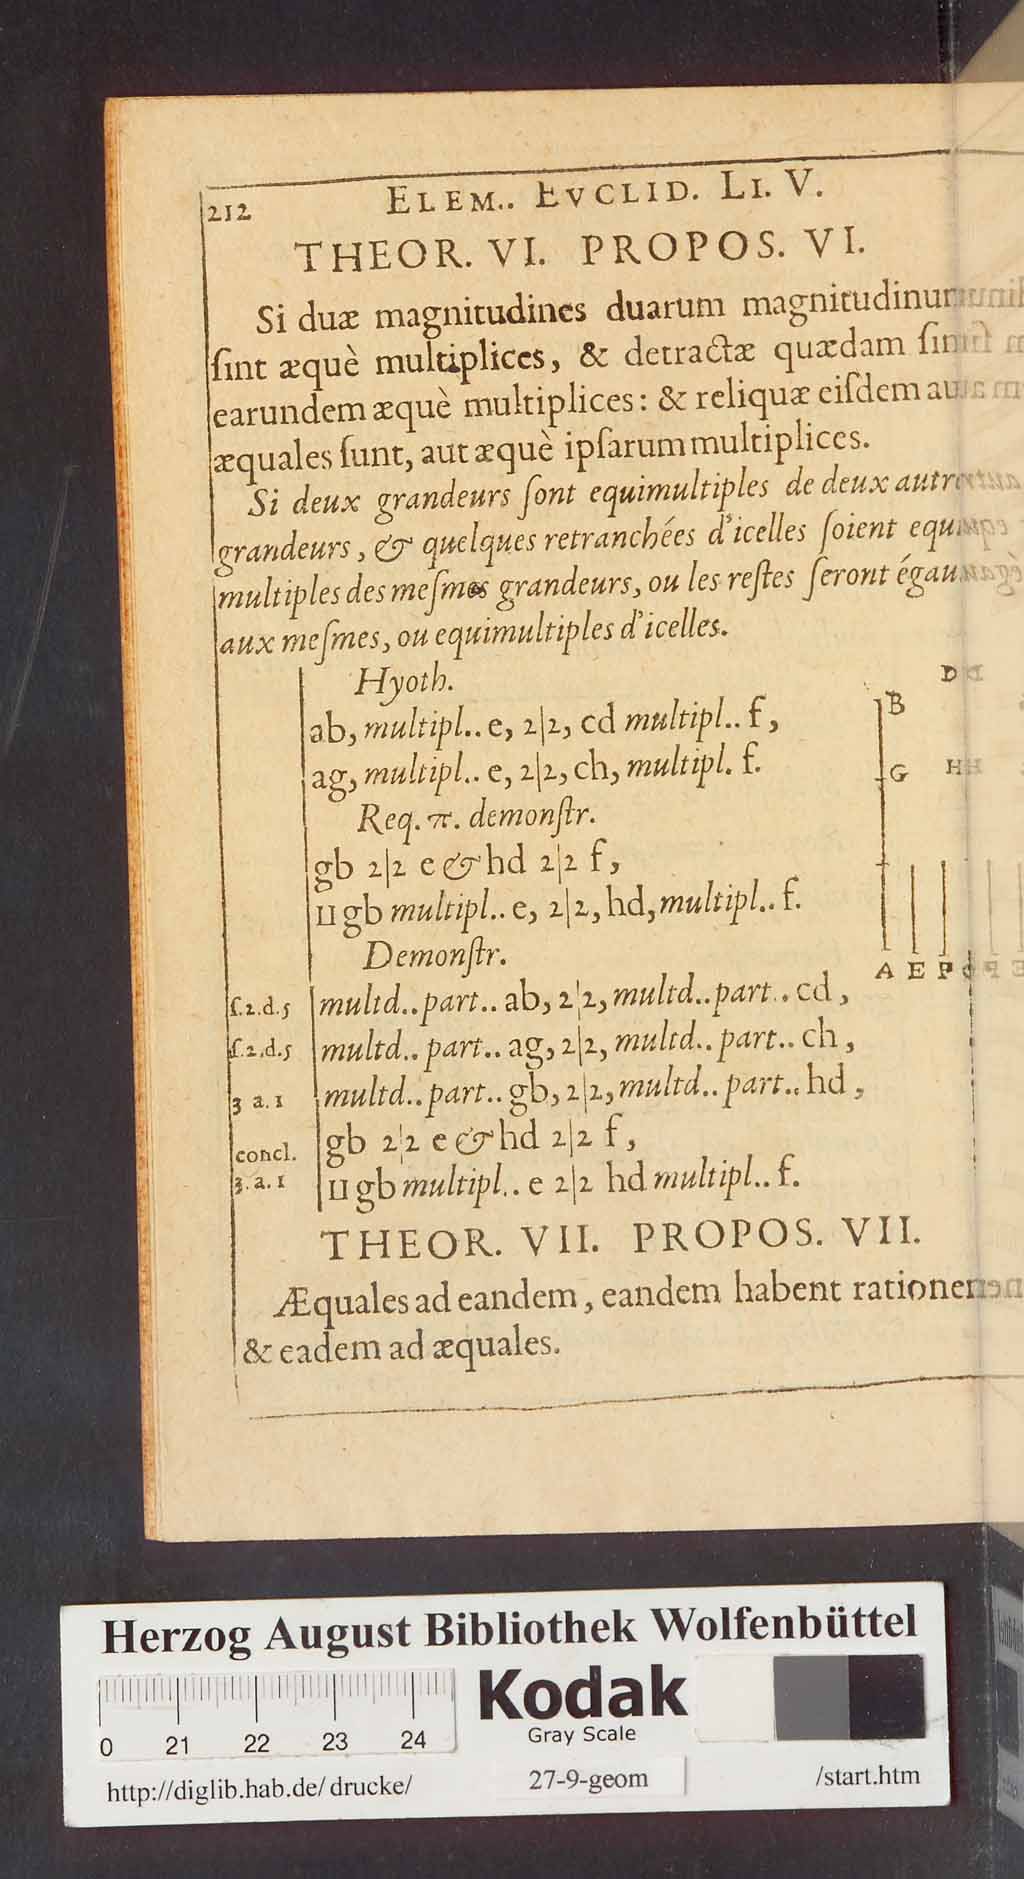 212 ELEM.. EVCLID. LI. V.
THEOR. VI. PROPOS. VI.
Si duæ magnitudines duarum magnitudinum
ſint æquè multiplices, & detractæ quædam ſint
earundem æquè multiplices: & reliquæ eiſdem aut
æquales ſunt, aut æquè ipſarum multiplices.
Si deux grandeurs ſont equimultiples de deux autres
grandeurs, & quelques retranchées d'icelles ſoient equi-
multiples des meſmes grandeurs, ou les reſtes ſeront égaux
aux meſmes, ou equimultiples d'icelles.
Hyoth.
ab, multipl.. e, 2|2, cd multipl.. f,
ag, multipl.. e, 2|2, ch, multipl. f.
Req. π. demonſtr.
gb 2|2 e & hd 2|2 f,
⊔ gb multipl.. e, 2|2, hd, multipl.. f.
Demonſtr.
ſ.2.d.5 multd.. part.. ab, 2|2, multd.. part.. cd,
ſ.2.d.5 multd.. part.. ag, 2|2, multd.. part.. ch,
3 a. 1 multd.. part.. gb, 2|2, multd.. part.. hd,
concl. gb 2|2 e & hd 2|2 f,
3. a. 1 ⊔ gb multipl.. e 2|2 hd multipl.. f.
D
B
G H
A E F
THEOR. VII. PROPOS. VII.
Æquales ad eandem, eandem habent rationem
& eadem ad æquales.
Herzog August Bibliothek Wolfenbüttel
Kodak
Gray Scale
0 21 22 23 24
http://diglib.hab.de/ drucke/ 27-9-geom /start.htm